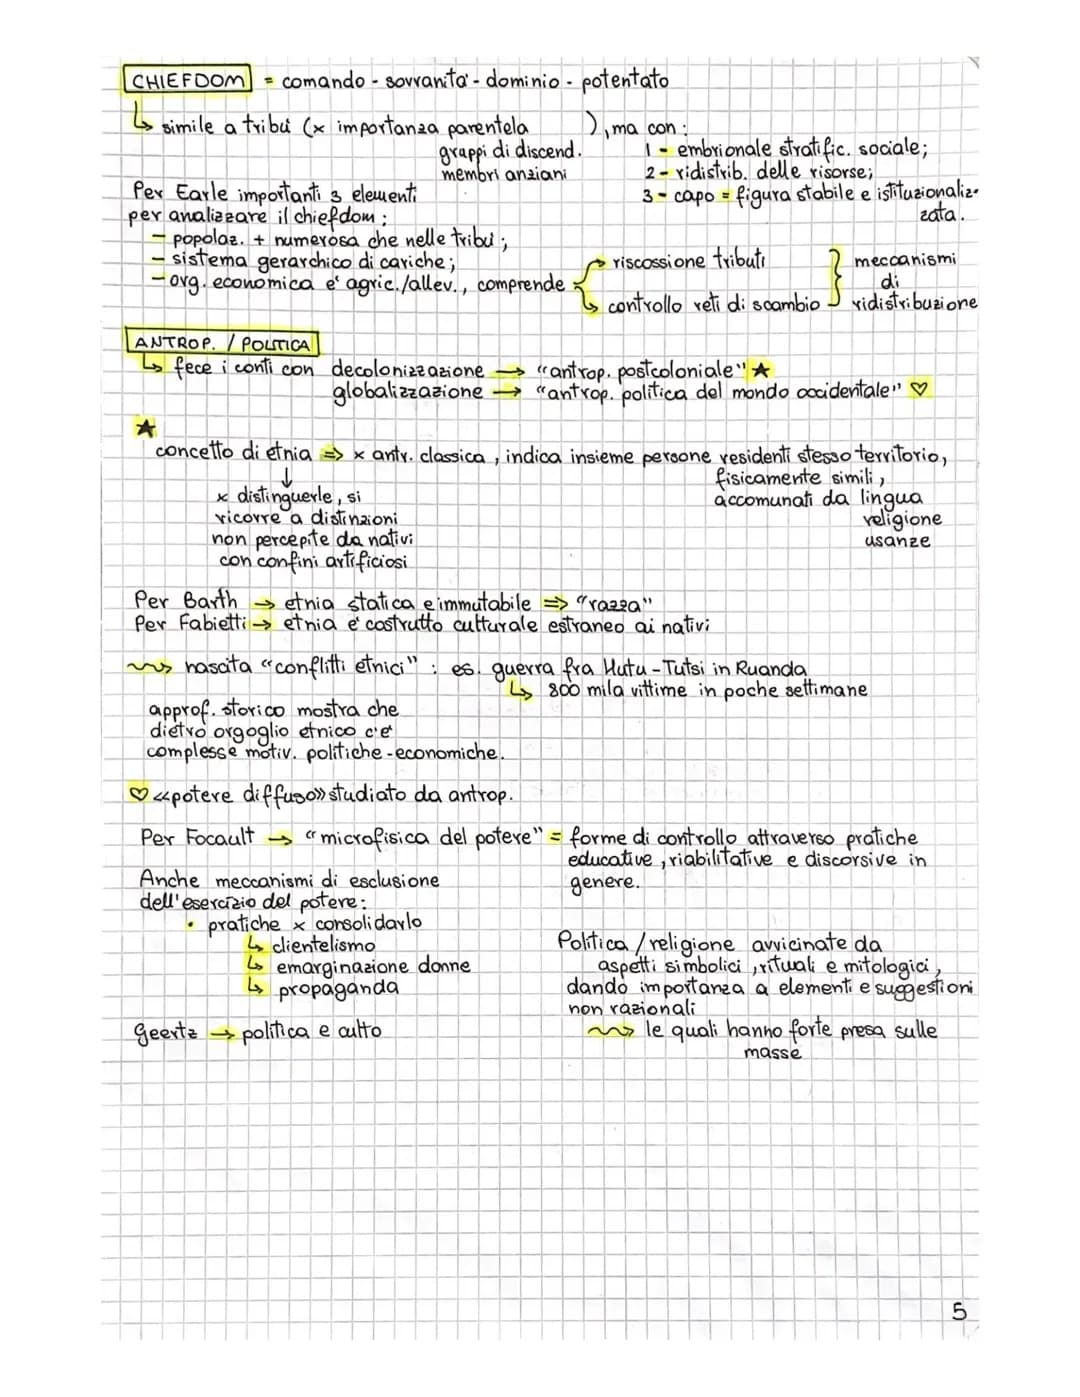 CHIEFDOM = comando - sovranita' - dominio - potentato
↳ simile a tribú (x importanza parentela ), ma con :
gruppi di discend.
membri anziani
1 - embrionale stratific. sociale;
2 - ridistrib. delle risorse;
3 - capo = figura stabile e istituzionaliz-
zata.
Per Earle importanti 3 elementi
per analizzare il chiefdom :
- popolaz. + numerosa che nelle tribú ;
- sistema gerarchico di cariche;
- org. economica é agric./allev., comprende
riscossione tributi
controllo reti di scambio
meccanismi
di
ridistribuzione
ANTROP. / POLITICA
↳ fece i conti con decolonizzazione → "antrop. postcoloniale" ★
globalizzazione → "antrop. politica del mondo occidentale" ♡
★
concetto di etnia ⇒ x antr. classica , indica insieme persone residenti stesso territorio,
fisicamente simili ,
accomunati da lingua
religione
usanze
↓
x distinguerle, si
ricorre a distinzioni
non percepite da nativi
con confini artificiosi
Per Barth → etnia statica e immutabile ⇒ "razza"
Per Fabietti → etnia é costrutto culturale estraneo ai nativi
nascita "conflitti etnici" : es. guerra fra Hutu - Tutsi in Ruanda
↳ 800 mila vittime in poche settimane
approf. storico mostra che
dietro orgoglio etnico c'é
complesse motiv. politiche - economiche.
♡ «potere diffuso» studiato da antrop.
Per Focault → "microfisica del potere" = forme di controllo attraverso pratiche
educative , riabilitative e discorsive in
genere.
Anche meccanismi di esclusione
dell'esercizio del potere:
• pratiche x consolidarlo
↳ clientelismo
↳ emarginazione donne
↳ propaganda
Geertz → politica e culto
Politica / religione avvicinate da
aspetti simbolici , rituali e mitologici ,
dando importanza a elementi e suggestioni
non razionali
le quali hanno forte presa sulle
masse
5